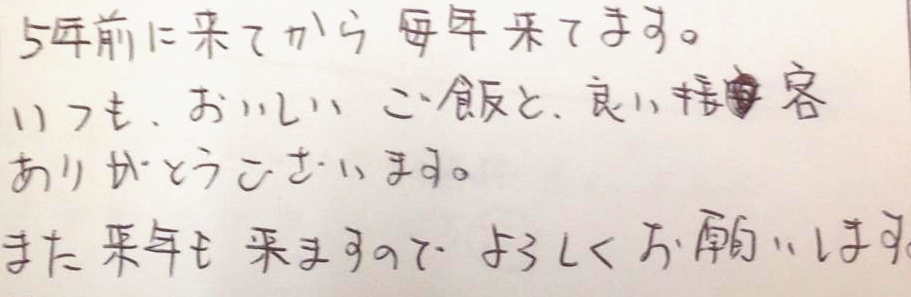 5年前に来てから 毎年 来てます。
いつも、おいしい ご飯と、良い接客
ありがとうございます。
また 来年も 来ますので よろしくお願いします。